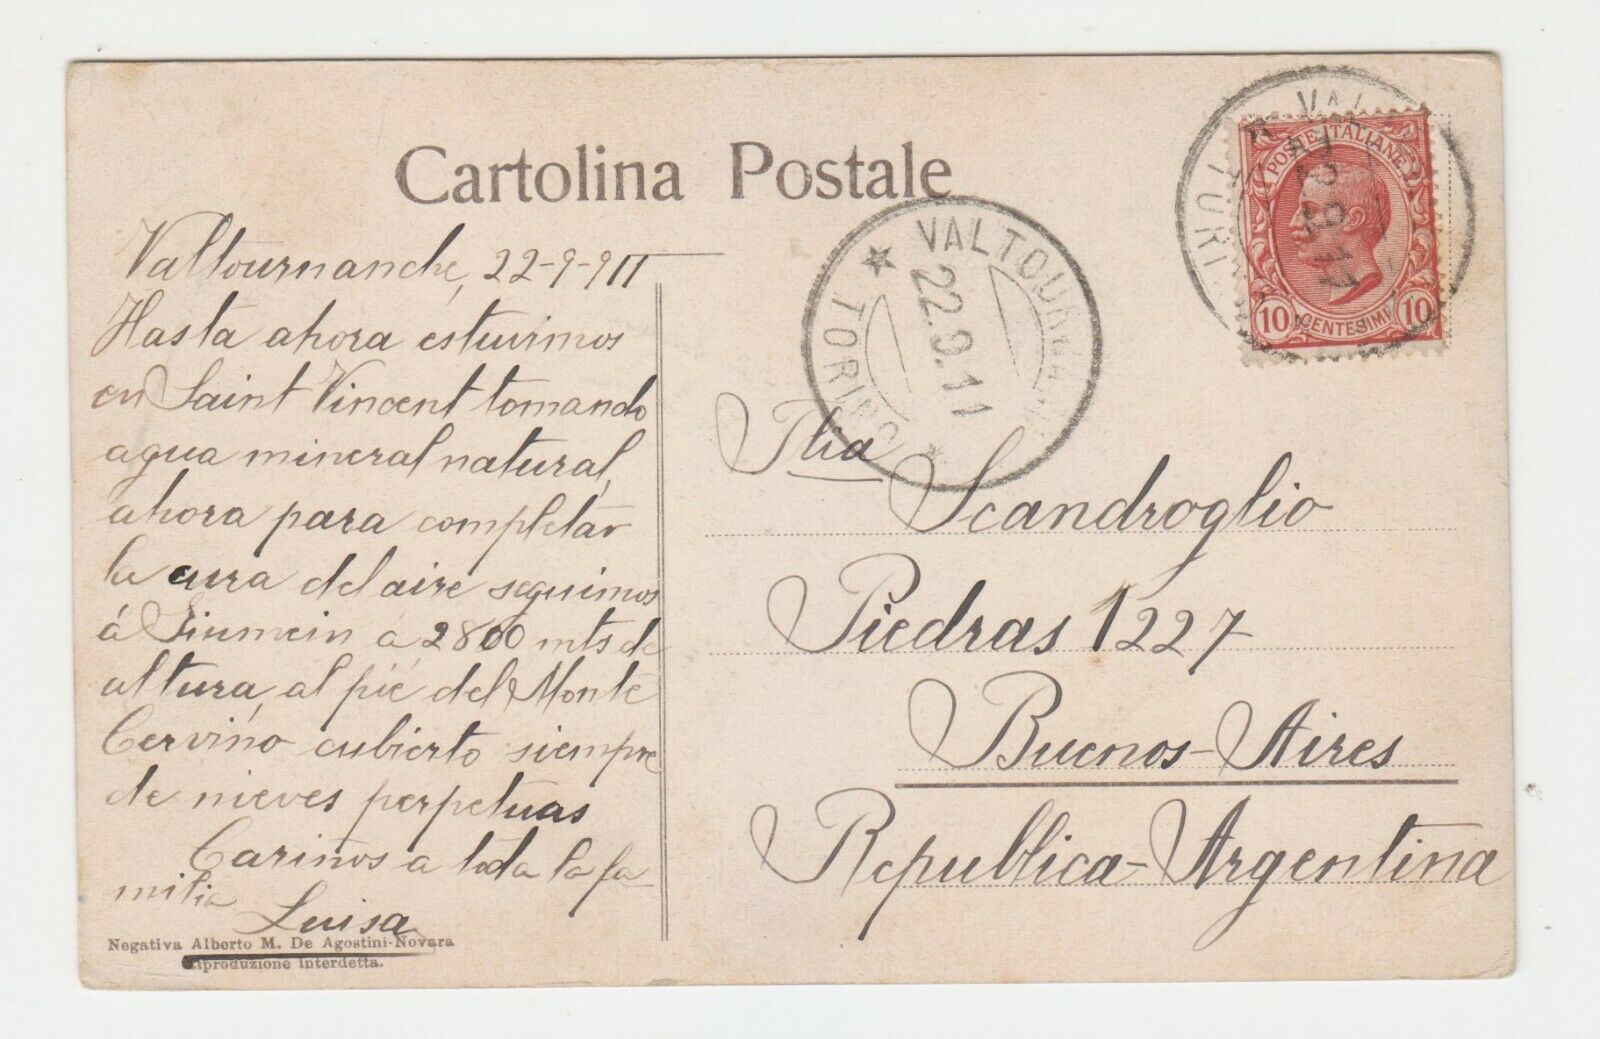 Cartolina Postale
Valtournanche, 22-9-911
Hasta ahora estuvimos
en Saint Vincent tomando
agua mineral natural,
ahora para completar
la cura del aire seguimos
á Giumein a 2800 mts de
altura, al pié del Monte
Cervino cubierto siempre
de nieves perpetuas
Cariños a toda la fa-
milia
Luisa
Negativa Alberto M. De Agostini-Novara
Riproduzione interdetta.
VALTOURNANCHE
22.9.11
TORINO
POSTE ITALIANE
10 CENTESIMI 10
Flia
Scandroglio
Piedras 1227
Buenos-Aires
Republica-Argentina